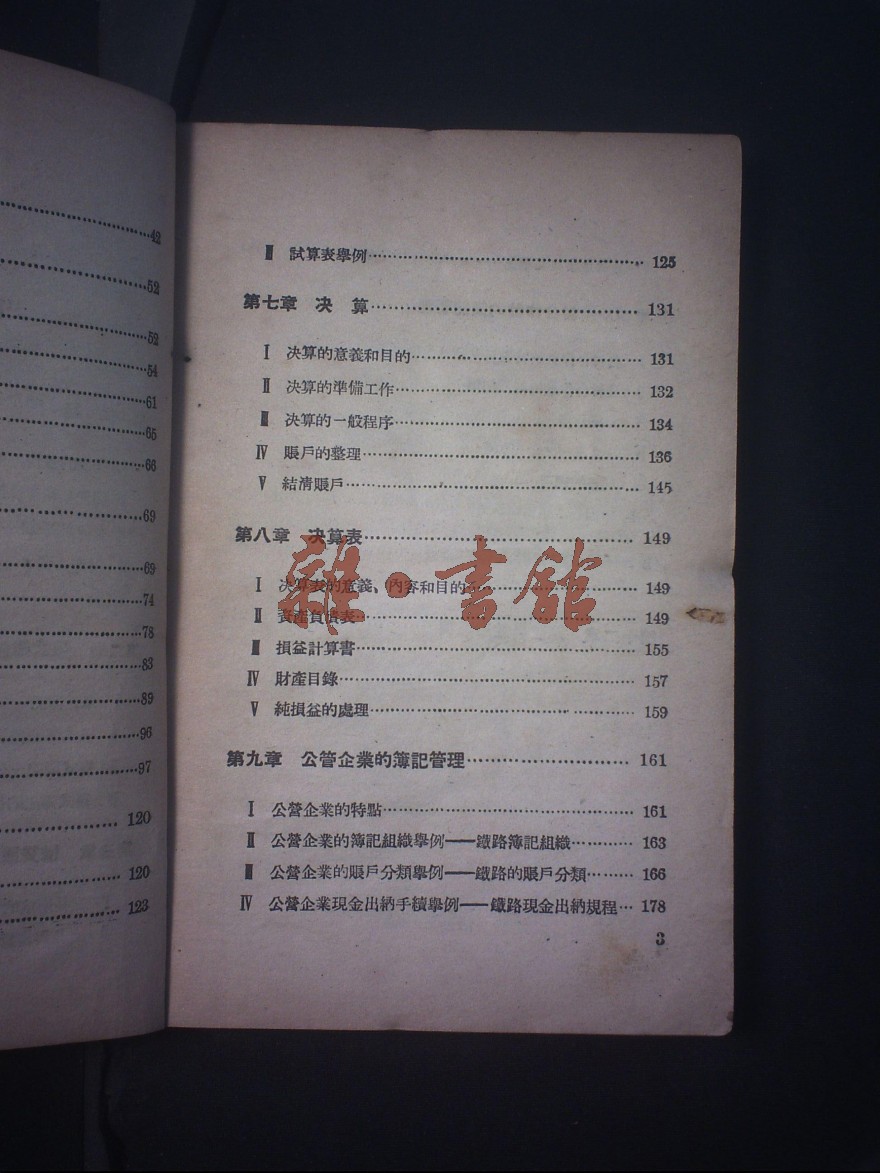 42
52
52
54
61
65
66
69
69
74
78
83
89
96
97
120
120
123
Ⅲ 試算表舉例 125
第七章 决 算 131
Ⅰ 决算的意義和目的 131
Ⅱ 决算的準備工作 132
Ⅲ 决算的一般程序 134
Ⅳ 賬戶的整理 136
Ⅴ 結清賬戶 145
第八章 决算表 149
Ⅰ 决算表的意義、內容和目的 149
Ⅱ 資產負債表 149
Ⅲ 損益計算書 155
Ⅳ 財產目錄 157
Ⅴ 純損益的處理 159
第九章 公營企業的簿記管理 161
Ⅰ 公營企業的特點 161
Ⅱ 公營企業的簿記組織舉例——鐵路簿記組織 163
Ⅲ 公營企業的賬戶分類舉例——鐵路的賬戶分類 166
Ⅳ 公營企業現金出納手續舉例——鐵路現金出納規程 178
3
雜·書館